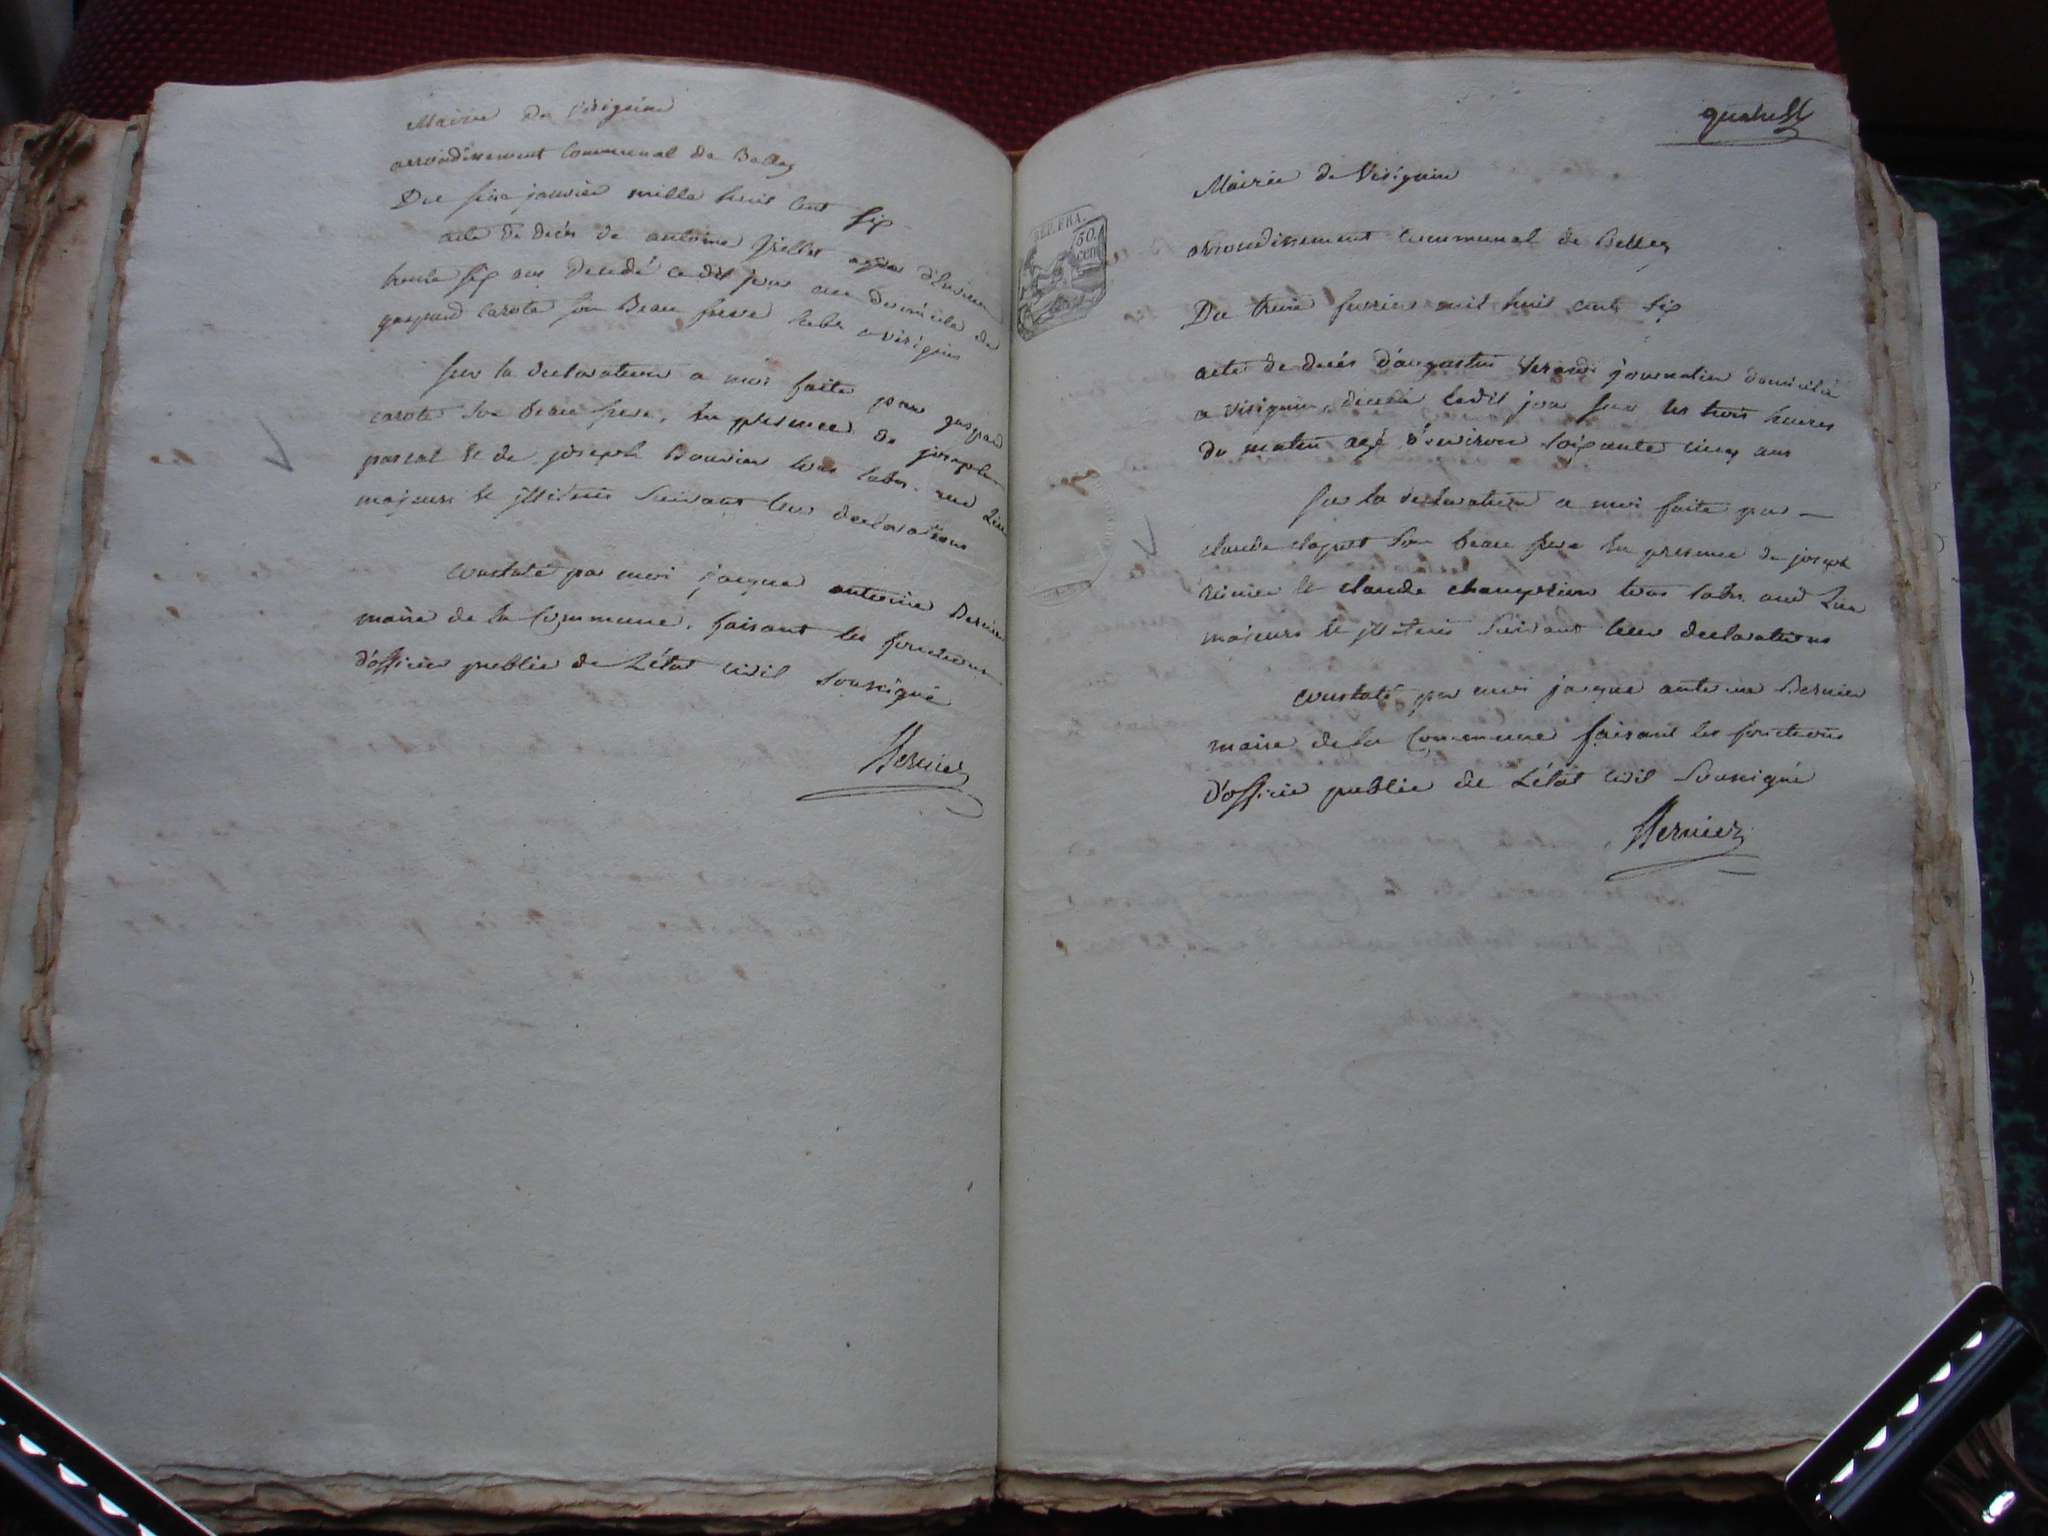 Mairie de Virignin
arrondissement Communal de Belley
Du seize janvier mille huit Cent six
acte de décès de antoine agée d'Environ
trente six ans decedé ce dit jour au domicile de
gaspard carote son Beau frere labr a virignin
sur la declaration a moi faite par gaspard
carote son beau frere, En presence de joseph
pascal et de joseph Bouvier tous labrs. aud Lieu
majeurs et illiteris Suivant leur declarations
constaté par moi jacque antoine Bernier
maire de la Commune. faisant les fonctions
d'officier publie de L'état civil Soussigné
Bernier
quatre
REP. FRA.
50.
cent
Mairie de Virignin
arrondissement communal de Belley
Du treize fevrier mil huit cent six
acte de decés d'augustin journalier domicilié
a virignin, decedé ledit jour sur les trois heures
du matin agé d'environ soixante cinq ans
Sur la declaration a moi faite par —
claude son beau frere En presence de joseph
et claude champion tous labrs. aud Lieu
majeurs et illiteris Suivant leur declarations
constaté par moi jacque antoine Bernier
maire de la Commune faisant les fonctions
d'officie publie de L'état civil Soussigné
Bernier